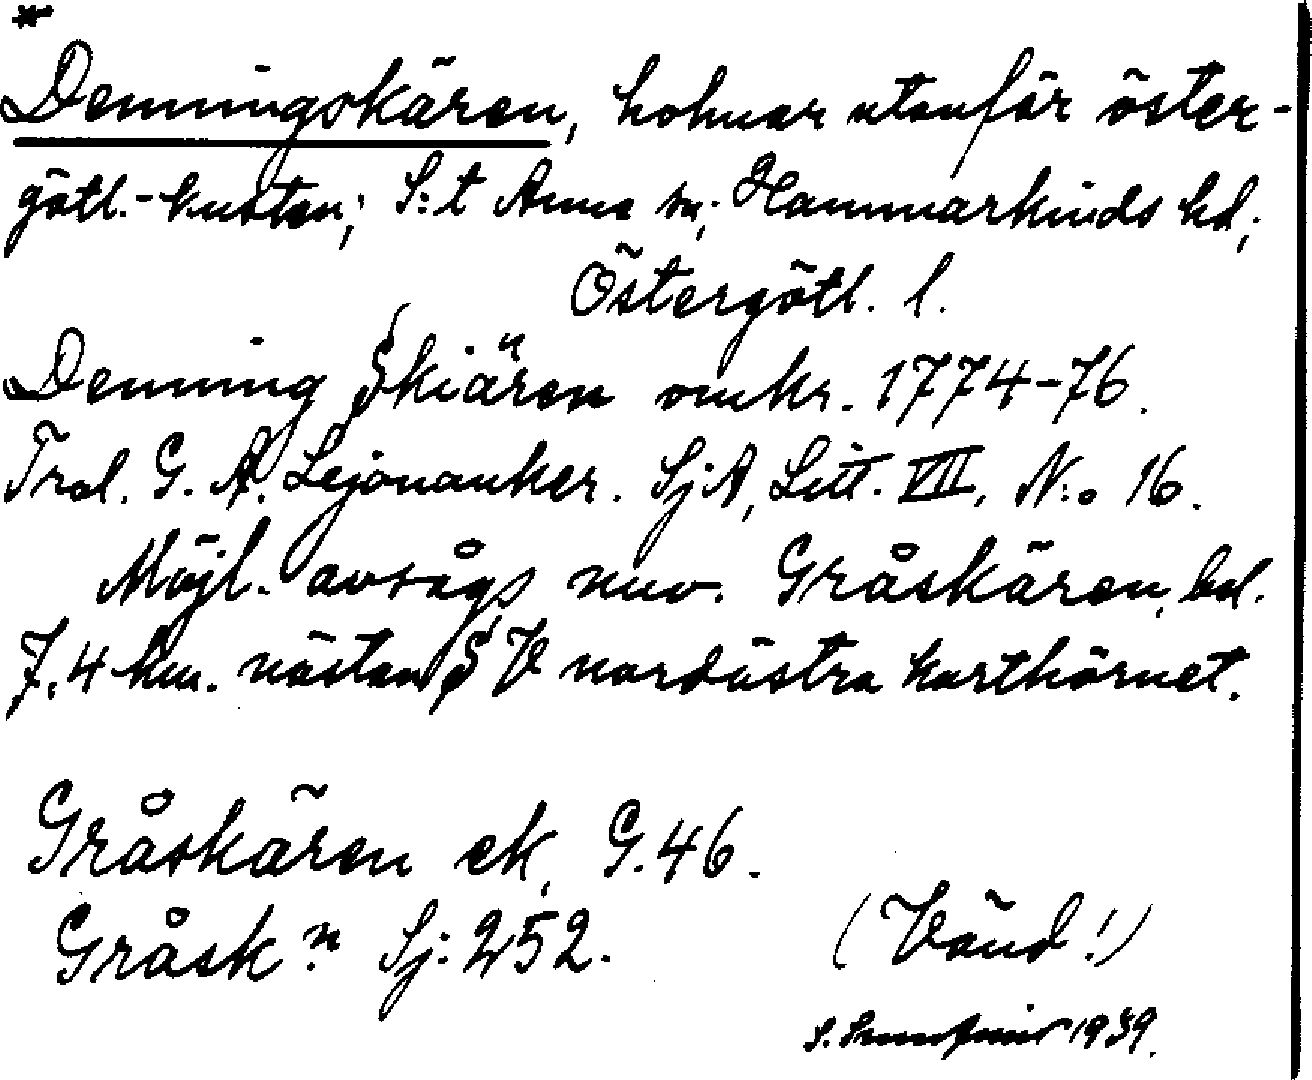 *
Denningskären, holmar utanför öster-
götl.-kusten; S:t Anna sn; Hammarkinds hd;
Östergötl. l.
Denning Skiären omkr. 1774-76.
Trol. G. A. Lejonanker. SjA, Litt. VII, N:o 16.
Möjl. avsågs nuv. Gråskären, bel.
7,4 km. nästan S V nordöstra karthörnet.
Gråskären ek. G. 46.
Gråsk:n Sj: 252.
(Vänd!)
S. 1939.